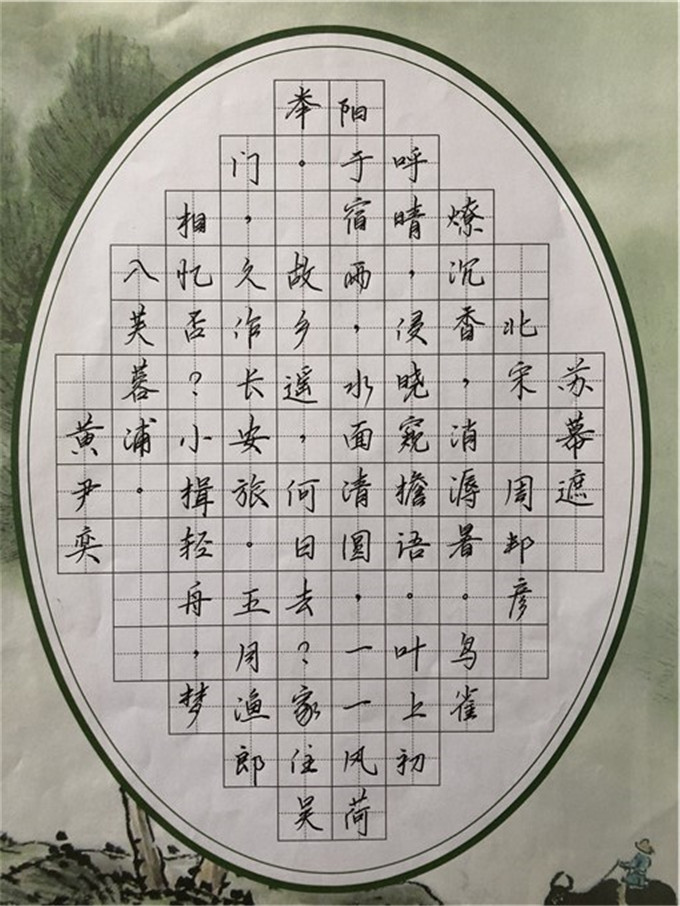 苏幕遮
北宋 周邦彦
燎沉香，消溽暑。鸟雀
呼晴，侵晓窥檐语。叶上初
阳于宿雨，水面清圆，一一风荷
举。 故乡遥，何日去？家住吴
门，久作长安旅。五月渔郎
相忆否？小揖轻舟，梦
入芙蓉浦。
黄尹奕